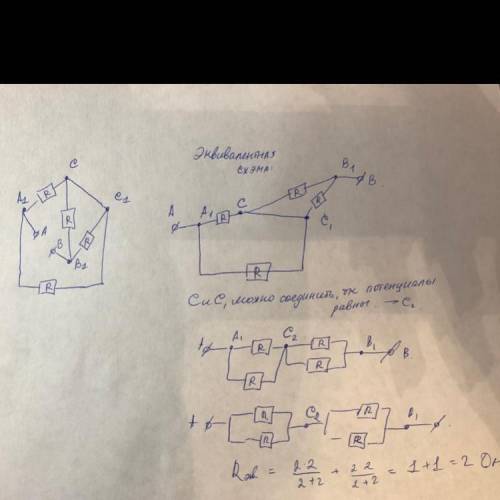 Эквивалентная
схема:
C
A1
R
C1
R
A
B
R
B1
R
A
A1
R
C
R
B1
B
R
C1
R
C и C1 можно соединить, тк потенциалы
равны. → C2
A
A1
R
C2
R
B1
B
R
R
A
R
C2
R
B1
R
R
Rэв = 2·2/2+2 + 2·2/2+2 = 1+1=2 Ом